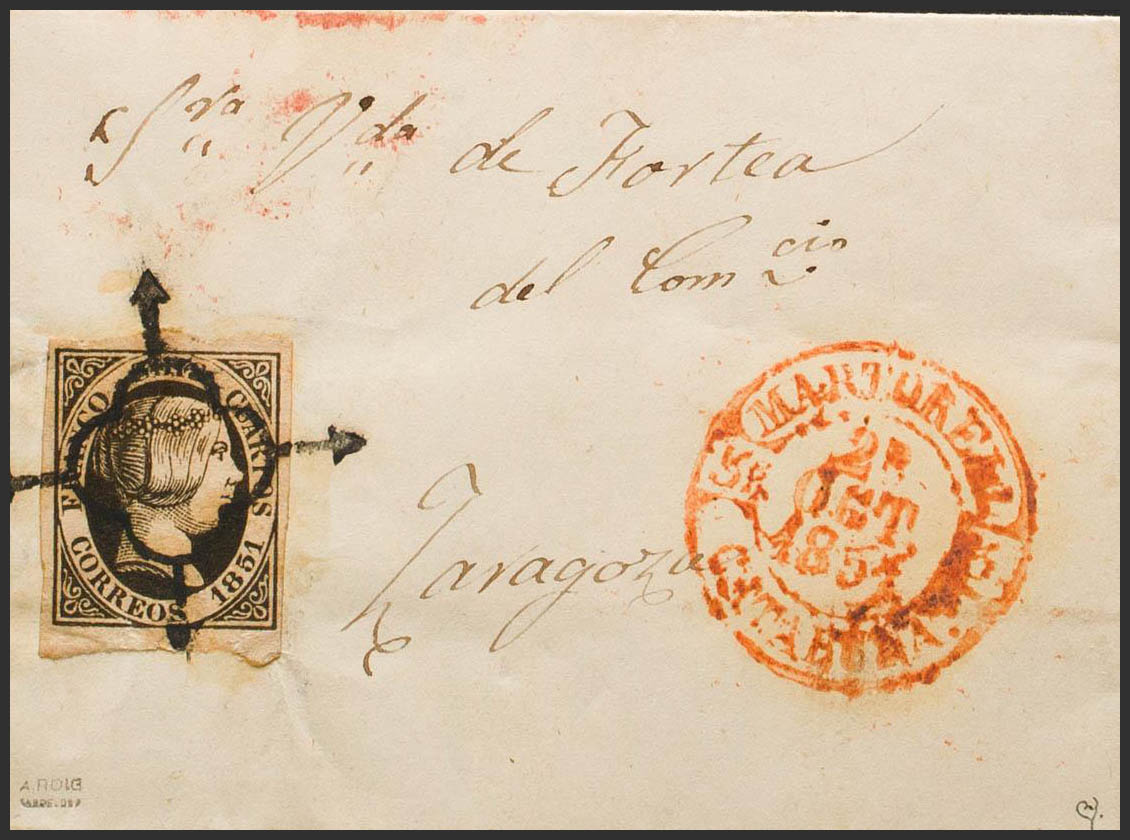 Sra Vda de Fortea
del Comcio
Zaragoza
FRANCO CUARTOS
CORREOS 1851
MARTORELL
OCT
185
CATALUÑA.
A. ROIG